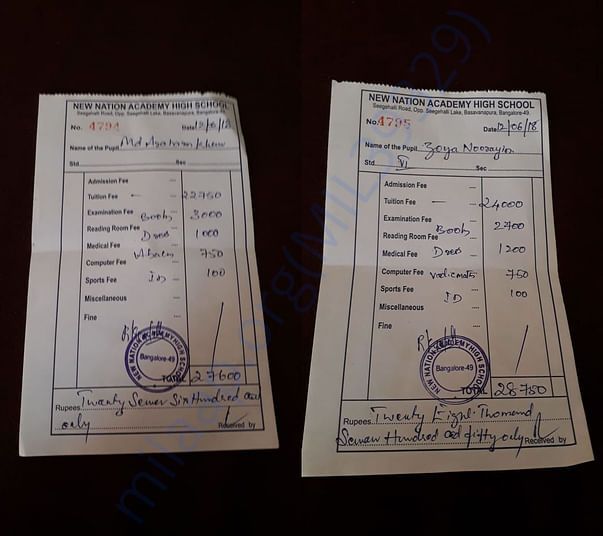 NEW NATION ACADEMY HIGH SCHOOL
Seegehalli Road, Opp. Seegehalli Lake, Basavanapura, Bangalore-49.
No. 4794 Date 12/06/18
Name of the Pupil Md
Std Sec
Admission Fee ---
Tuition Fee --- 22750
Examination Fee Books --- 3000
Reading Room Fee Dress --- 1000
Medical Fee --- 750
Computer Fee ID --- 100
Sports Fee ---
Miscellaneous ---
Fine
NEW NATION ACADEMY HIGH SCHOOL
Bangalore-49
TOTAL 27600
Rupees Twenty Seven Six Hundred and
only Received by
NEW NATION ACADEMY HIGH SCHOOL
Seegehalli Road, Opp. Seegehalli Lake, Basavanapura, Bangalore-49.
No. 4795 Date 12/06/18
Name of the Pupil Zoya Noorayin
Std VI Sec
Admission Fee ----
Tuition Fee ---- 24000
Examination Fee ----
Reading Room Fee Books ---- 2700
Medical Fee Dress ---- 1200
Computer Fee ---- 750
Sports Fee ID ---- 100
Miscellaneous ----
Fine
NEW NATION ACADEMY HIGH SCHOOL
Bangalore-49
TOTAL 28750
Rupees Twenty Eight Thousand
Seven Hundred and fifty only Received by
milaap.org(MIL39329)